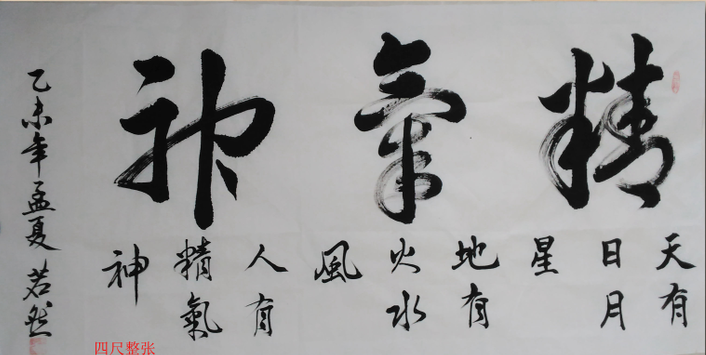 精氣神
天有
日月
星
地有
火水
風
人有
精氣
神
乙未年孟夏 若然
四尺整张